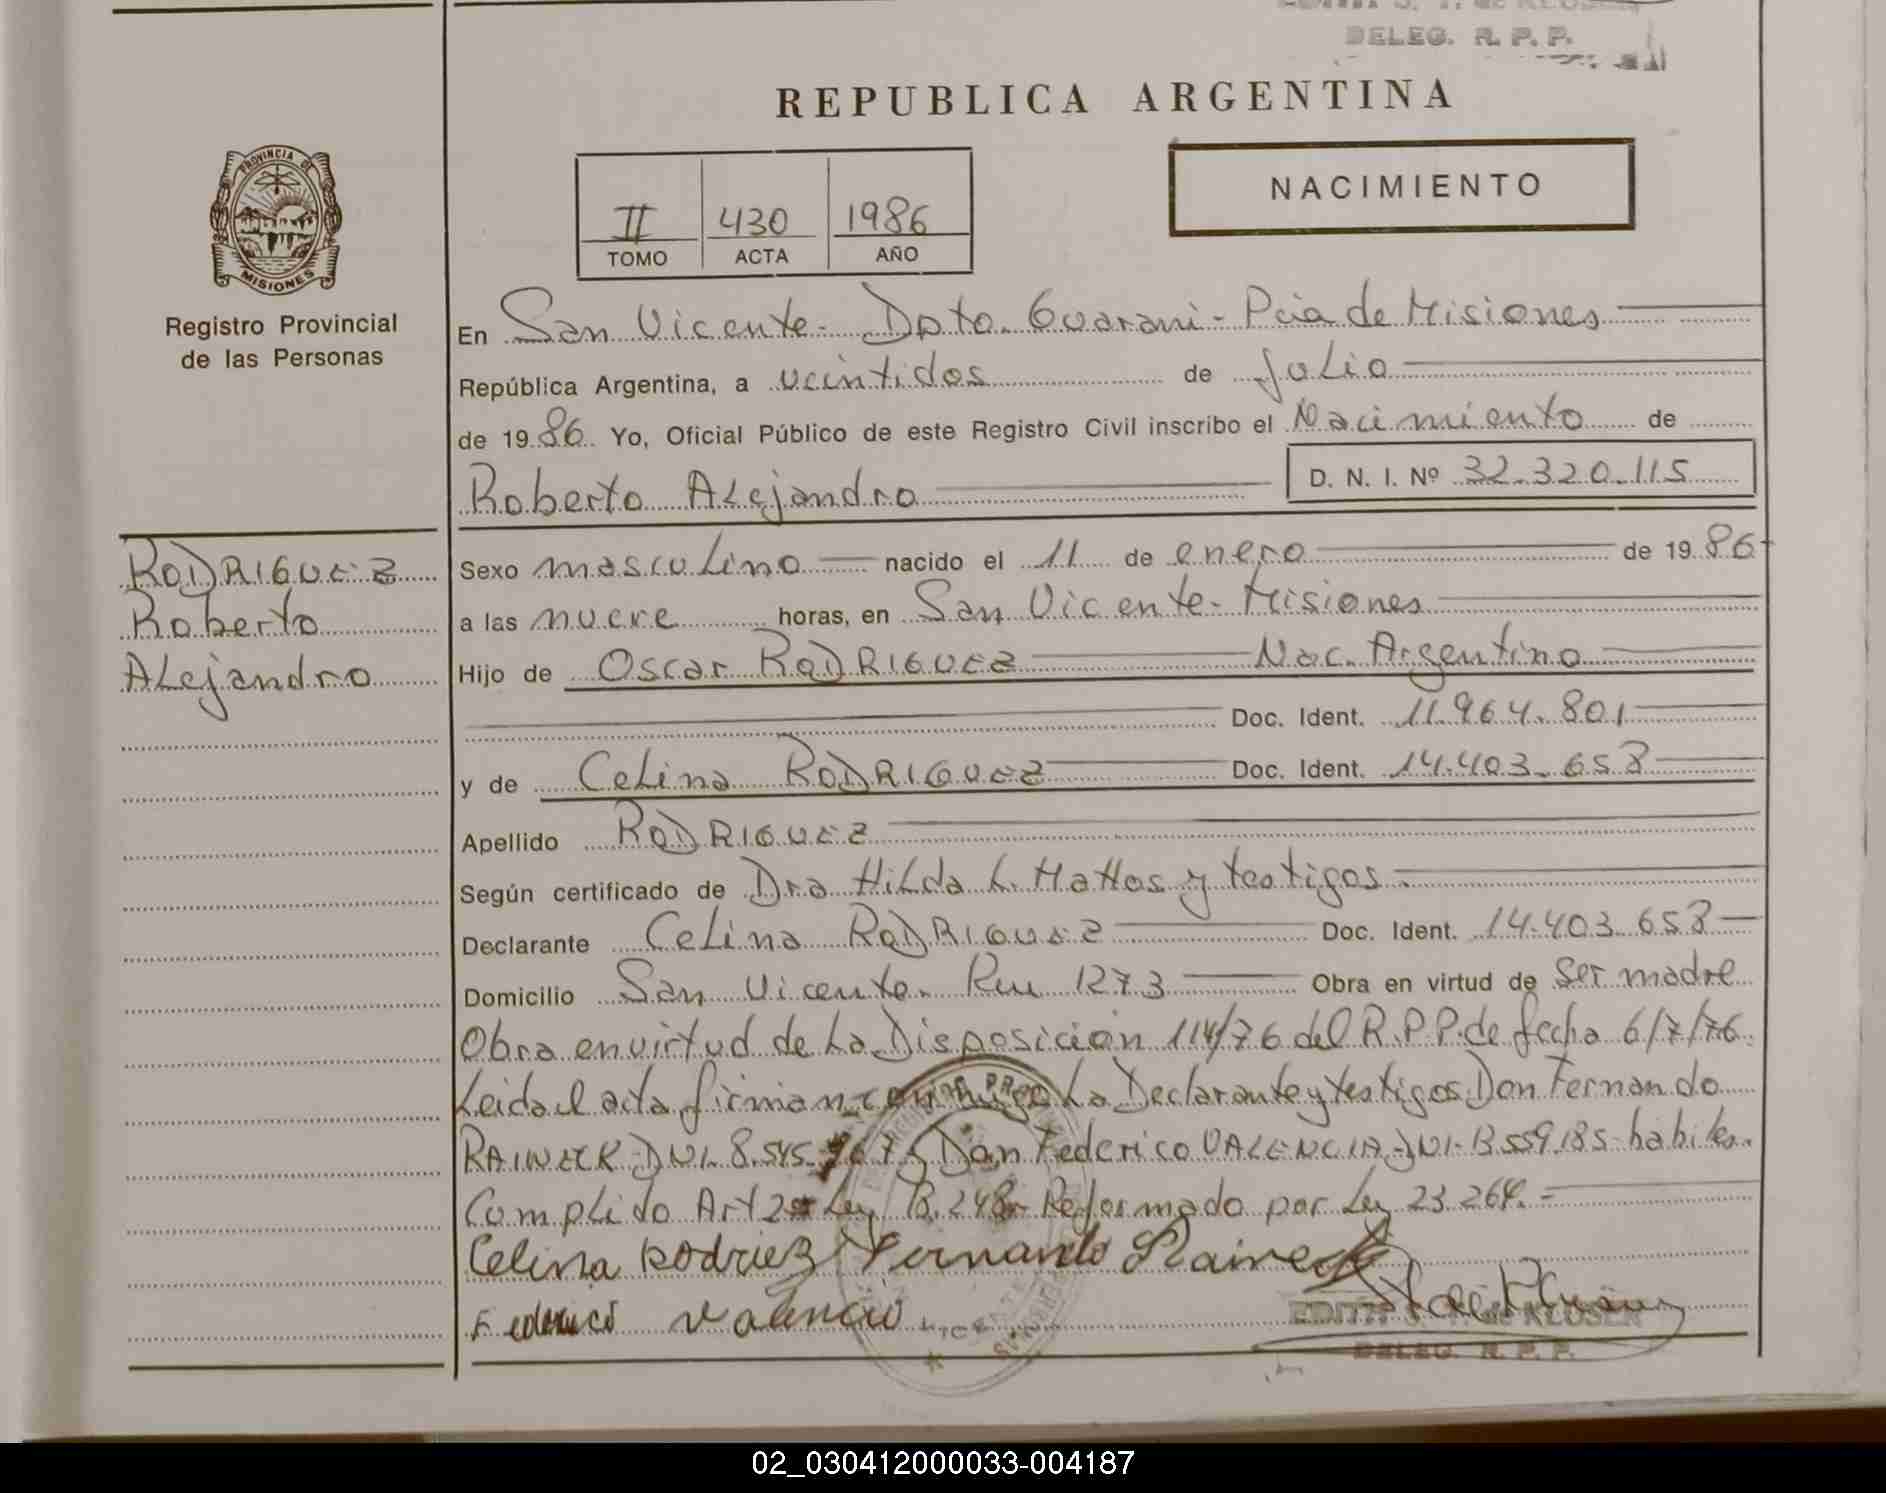 DELEG. R. P. P.
REPUBLICA ARGENTINA
PROVINCIA DE
MISIONES
Registro Provincial
de las Personas
II 430 1986
TOMO ACTA AÑO
NACIMIENTO
En San Vicente - Dpto. Guarani - Pcia de Misiones
República Argentina, a veintidos de Julio
de 1986 Yo, Oficial Público de este Registro Civil inscribo el Nacimiento de
Roberto Alejandro D. N. I. Nº 32.320.115
RODRIGUEZ
Roberto
Alejandro
Sexo masculino nacido el 11 de enero de 1986
a las nueve horas, en San Vicente - Misiones
Hijo de Oscar RODRIGUEZ Nac. Argentino
Doc. Ident. 11.964.801
y de Celina RODRIGUEZ Doc. Ident. 14.403.658
Apellido RODRIGUEZ
Según certificado de Dra Hilda L. Mattos y testigos.
Declarante Celina RODRIGUEZ Doc. Ident. 14.403.658
Domicilio San Vicente. Ruu 1273 Obra en virtud de Ser madre
Obra en virtud de La Disposición 114/76 del R.P.P. de fecha 6/7/76.
Leida el acta firman conmigo La Declarante y testigos Don Fernando
RAINECK DNI. 8.545. Don Federico VALENCIA DNI- 13.559.185- habiles.
Complido Art 2º Ley 18.248- Reformado por Ley 23.264.-
Celina Rodriez Fernando Raineck
Federico Valencio
EDITH DE KLUSER
DELEG. R. P. P.
02_030412000033-004187